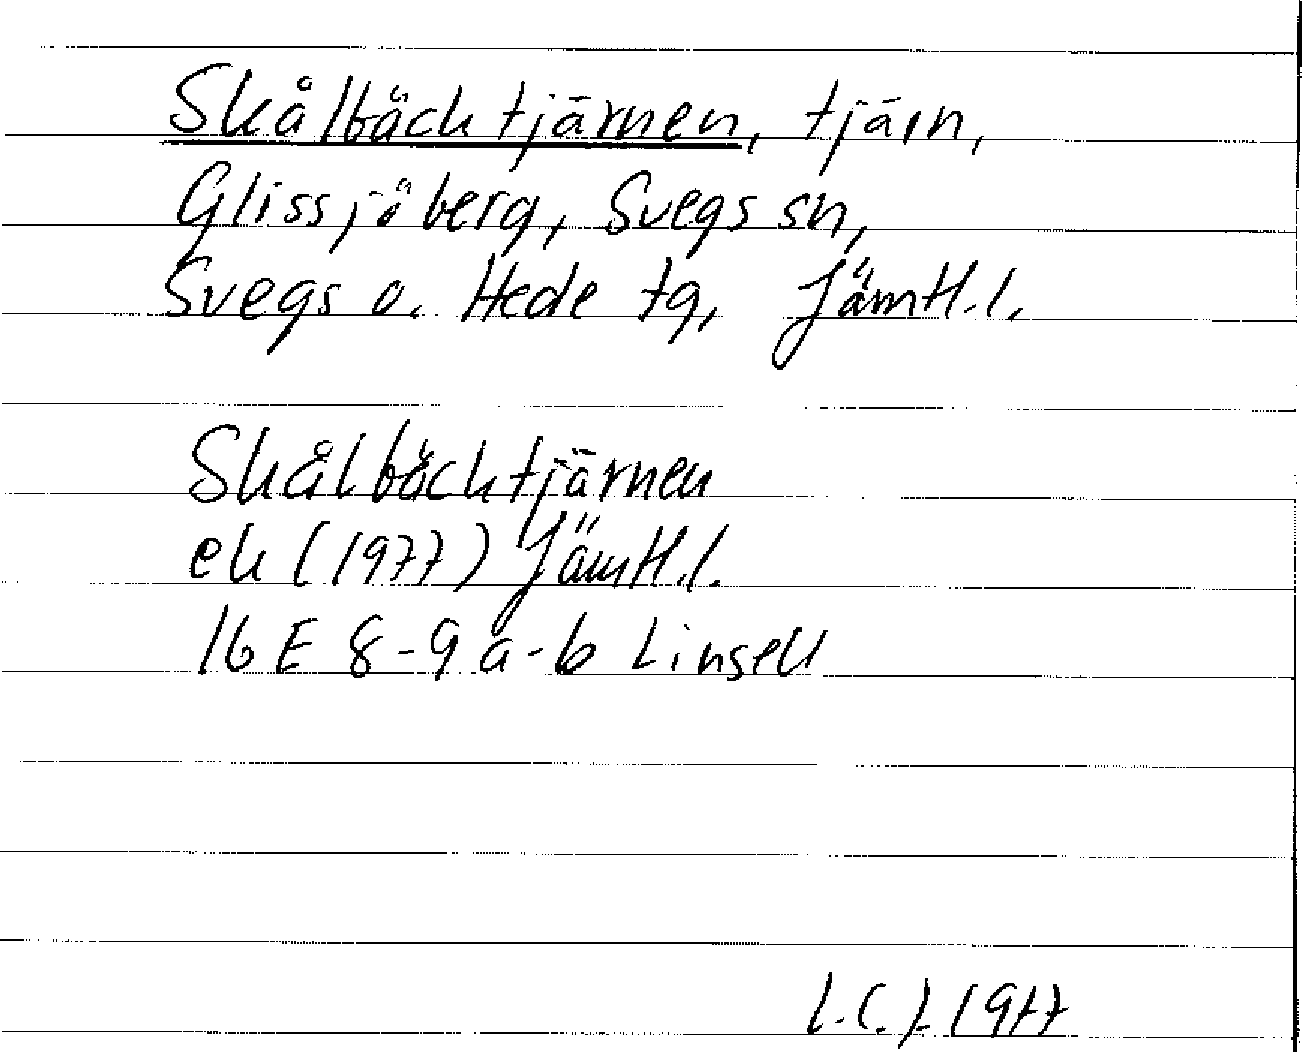 Skålbäcktjärnen, tjärn,
Glissjöberg, Svegs sn,
Svegs o. Hede tg, Jämtl. l.
Skålbäcktjärnen
ek (1977) Jämtl. l.
16 E 8-9 a-b Linsell
L.C.J. 1977